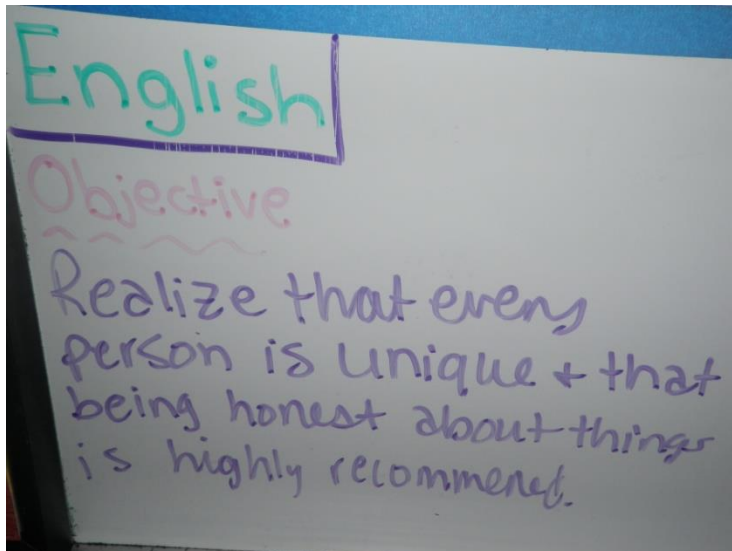 English
Objective
Realize that every
person is unique + that
being honest about things
is highly recommened.